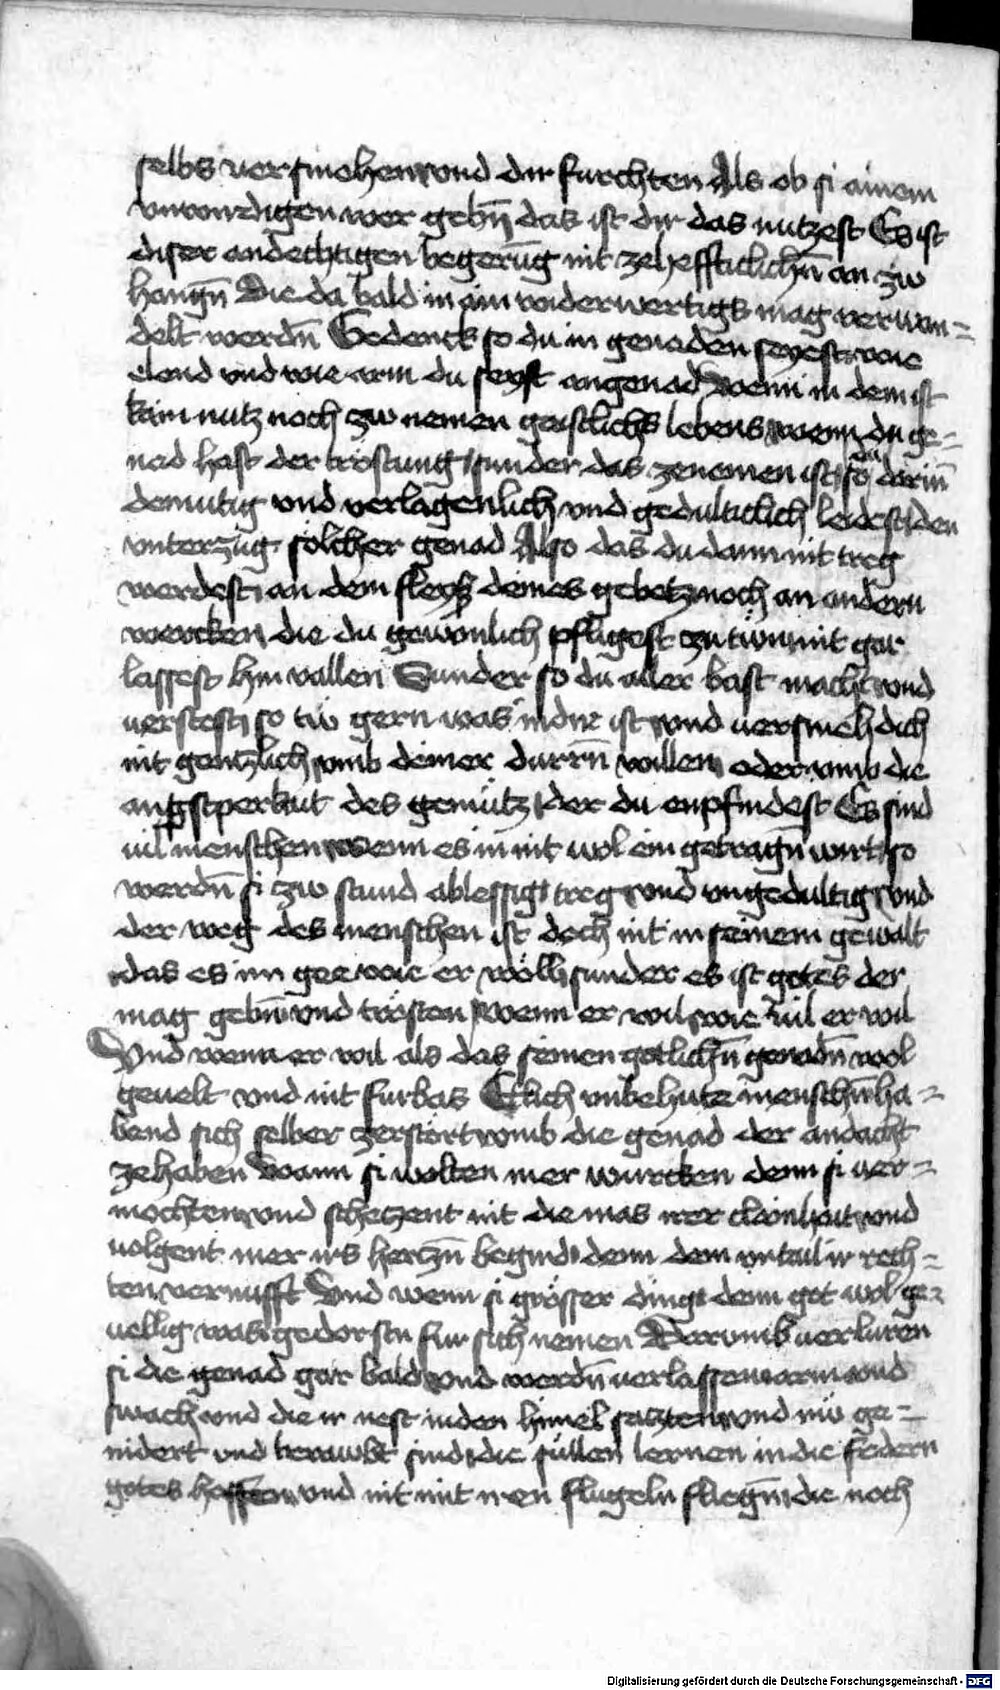 selbs versmehen vnd dir furchten Als ob si ainem
vnwirdigen wer gebn̄ das ist dir das nutzest Es ist
diser andechtigen begerūg nit zeheffticlichn̄ an zw
hangn̄ Die da bald in ain widerwertigs mag verwan=
delt werdn̄ Gedenck so du in genaden seyest wie
elend vnd wie arm du seyst angenad Wenn in dem ist
kain nutz noch zw nemen geistlichs lebens wenn du ge=
nad hast der tröstung sunder das zenemen ist so du dariñ
demutig vnd verlagenlich vnd gedulticlich leidest den
vnterzug solcher genad Also das du dann nit treg
werdest an dem fleyß deines gebetz noch an andern
wercken die du gewonlich pfligest zu tun nit gar
lassest hin vallen Sunder so du aller bast macht vnd
verstest so tw gern was in dir ist vnd versmeh dich
nit gentzlich vmb deiner dürrn̄ willen oder vmb die
angstperkait des gemütz der du enpfindest Es sind
vil menschen wenn es in nit wol ein getragn̄ wirt so
werdn̄ si zw stund ablessig treg vnd vngedultig vnd
der weg des menschen ist doch nit in seinem gewalt
das es im gee wie er wöll sunder es ist gotes der
mag gebn̄ vnd trösten wenn er wil wie vil er wil
Vnd wenn er wil als das seinen gotlichn̄ genadn̄ wol
geuelt vnd nit furbas Etlich vnbehutz menschn̄ ha=
bend sich selber zerstört vmb die genad der andacht
zehaben Wann si wolten mer wurcken denn si ver=
mochten vnd schetzent nit die mas irer clainhait vnd
volgent mer irs hertzn̄ begird denn dem vrtail ir rech=
ten vernufft Vnd wenn si grösser ding denn got wol ge=
uellig was gedorstn fur sich nemen Darvmb verluren
si die genad gar bald vnd werdn̄ verlassen arm vnd
swach vnd die ir nest in den himel satzten vnd nw ge=
nidert vnd beraubt sind die süllen lernen in die federn
gotes hoffen vnd nit mit iren flugeln fliegn̄ die noch
Digitalisierung gefördert durch die Deutsche Forschungsgemeinschaft - DFG